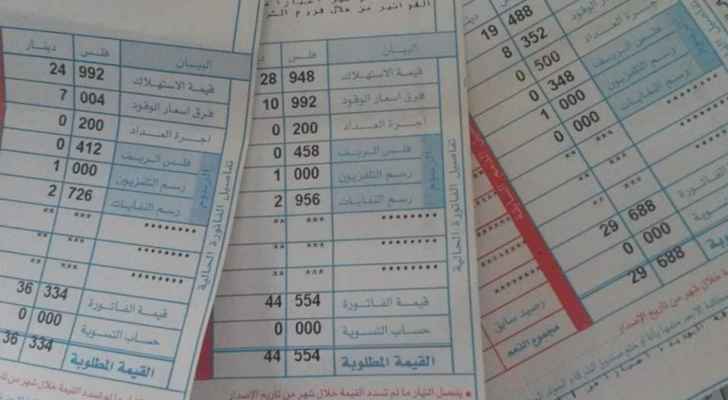 دينار فلس البيان
24 992 قيمة الاستهلاك
7 004 فرق اسعار الوقود
0 200 اجرة العداد
0 412 فلس الريف
1 000 رسم التلفزيون
2 726 رسم النفايات
** *** ********
** *** ********
** *** ********
36 334 قيمة الفاتورة
0 000 حساب التسوية
36 334 القيمة المطلوبة
الرسوم
تفاصيل الفاتورة الحالية
فلس البيان
28 948 قيمة الاستهلاك
10 992 فرق اسعار الوقود
0 200 اجرة العداد
0 458 فلس الريف
1 000 رسم التلفزيون
2 956 رسم النفايات
** *** ********
** *** ********
** *** ********
44 554 قيمة الفاتورة
0 000 حساب التسوية
44 554 القيمة المطلوبة
الرسوم
تفاصيل الفاتورة الحالية
يفصل التيار ما لم تسدد القيمة خلال شهر من تاريخ الإصدار
19 488
8 352 الوقود
0 500 اجرة العداد
0 348 فلس الريف
1 000 رسم التلفزيون
0 000 رسم النفايات
** ***
** ***
** ***
29 688 الفاتورة
0 000 التسوية
29 688
رصيد سابق
مجموع الذمم
خلال شهر من تاريخ الإصدار